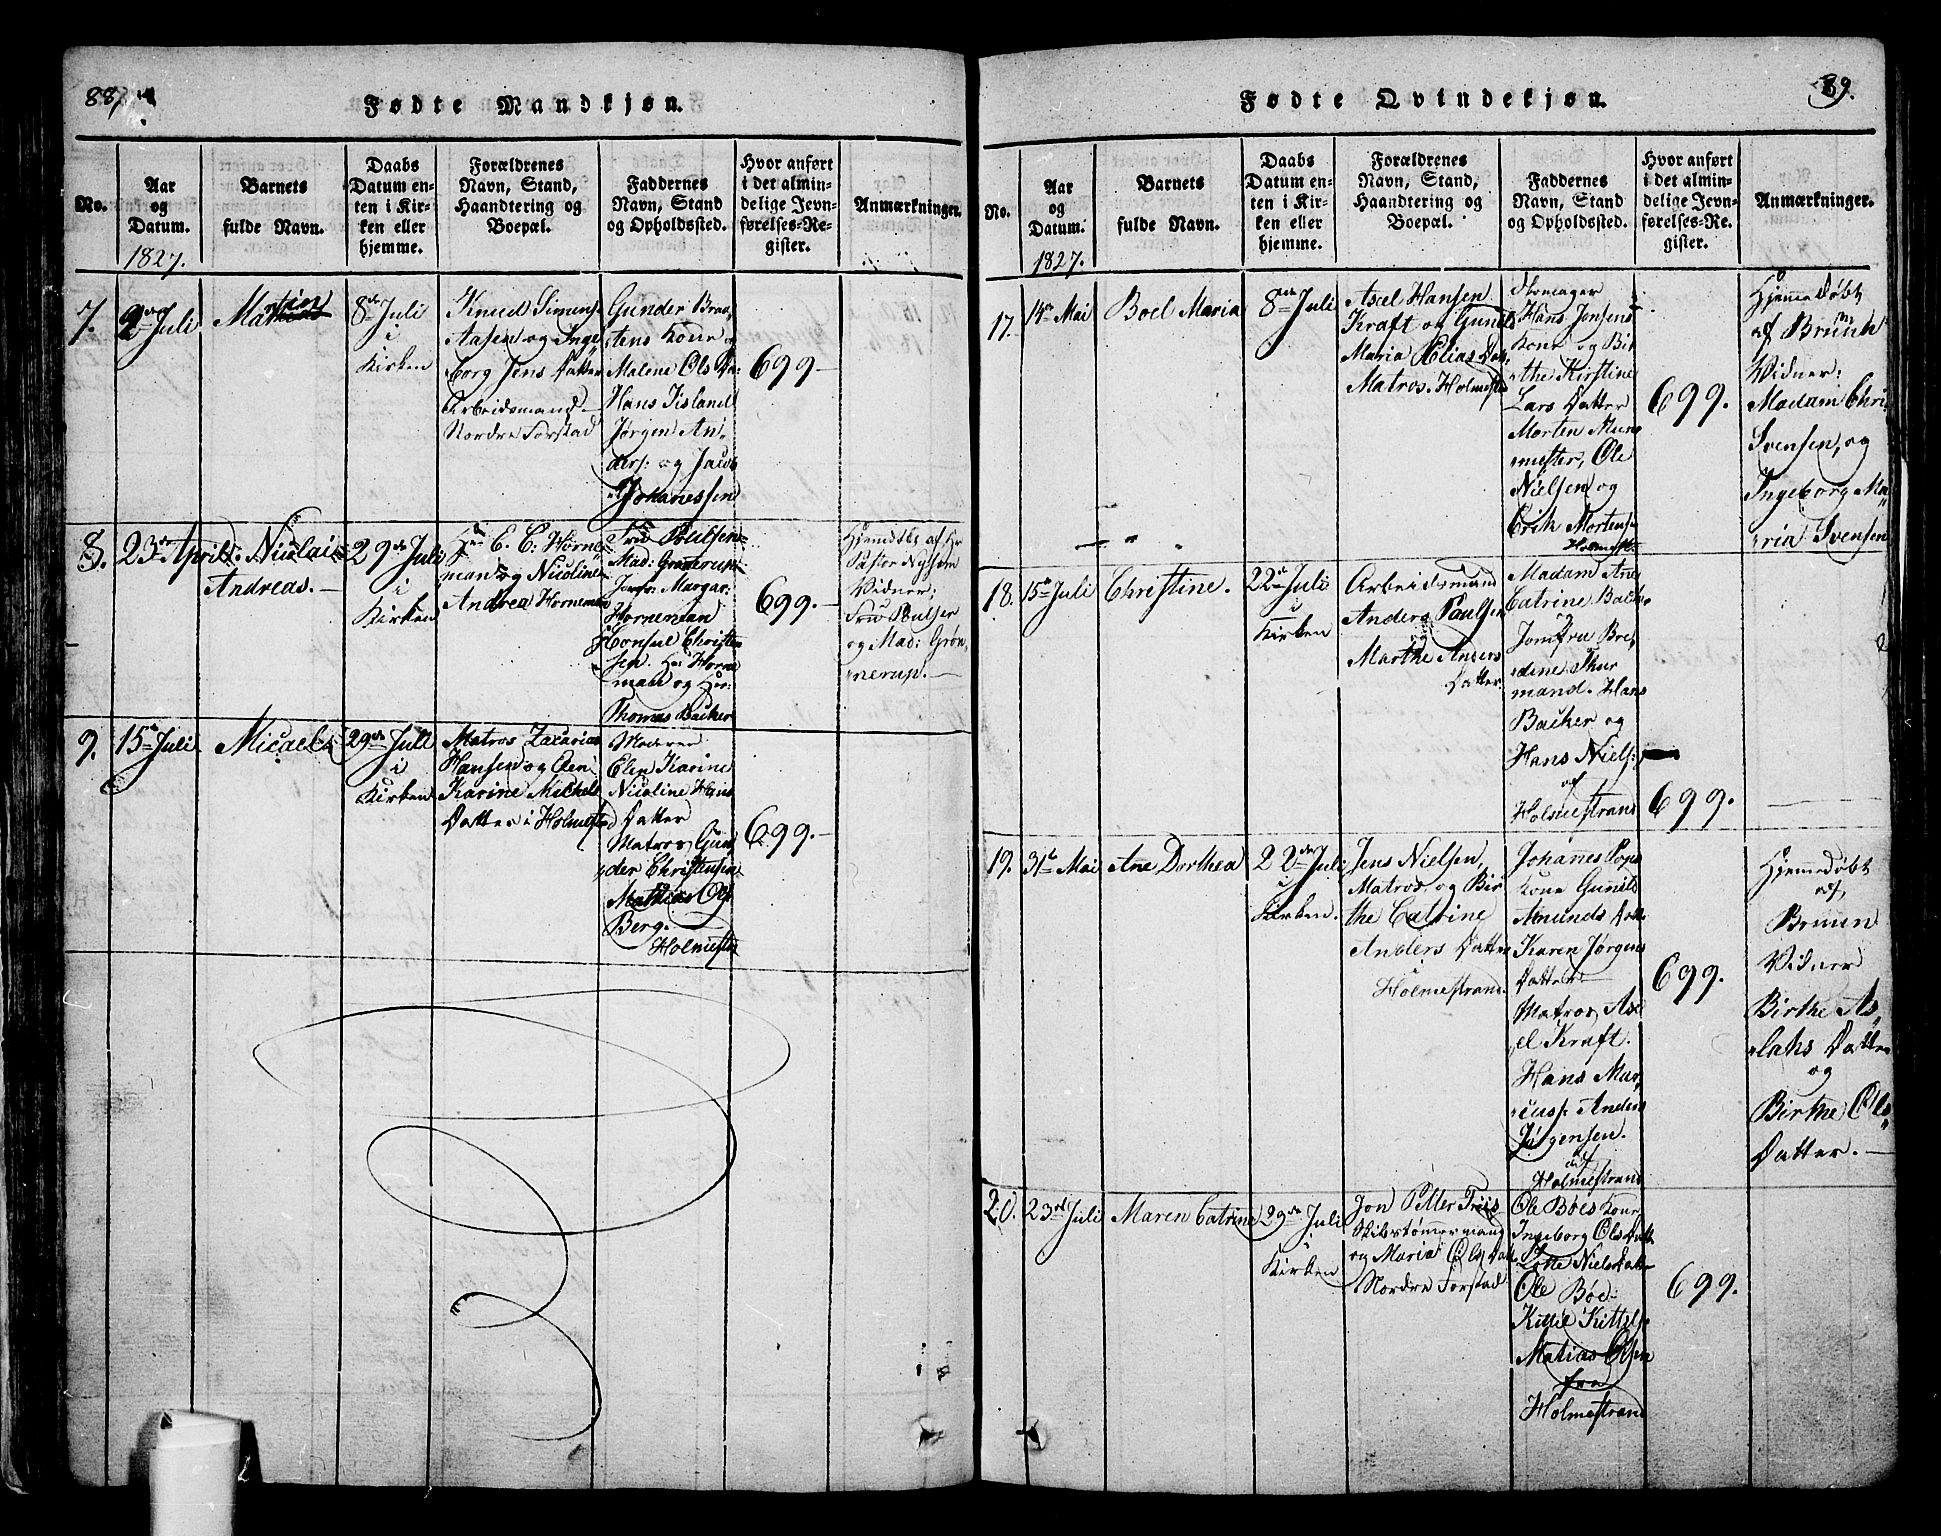 88.
Fødte Mandkjøn.
No.
Aar
og
Datum.
1827.
Barnets
fulde Navn.
Daabs
Datum en-
ten i Kir-
ken eller
hjemme.
Forældrenes
Navn, Stand,
Haandtering og
Boepæl.
Faddernes
Navn, Stand
og Opholdssted.
Hvor anført
i det almin-
delige Jevn-
førelses-Re-
gister.
Anmærkninger.
7.
2den Juli
Martin
8de Juli
i
Kirken
Knud Simens
Aasen og Inge
borg Jens Datter
Arbeidsmand
Nordre Forstad
Gunder Braa,
tens Kone og
Malene Ols Da:
Hans Iisland
Jørgen An,
ders: og Jacob
Johanessen
699
8.
23de April:
Nicolai
Andreas.
29de Juli
i
Kirken
Hr. E. C. Horne
man og Nicoline
Andrea Horneman
Fru Poulsen
Mad: Grønerup
Jomfr: Margar:
Horneman
Consul Christen
sen. Hr: Horne
man og Hr:
Thomas Backer
699.
Hjemdøbt af Hr
Pastor Nyssom
Vidner:
Fru Poulsen
og Mad: Grøn,
nerup.
9.
15de Juli
Micael
29de Juli
i
Kirken
Matros Zacarias
Hansen og Oen:
Karine Michels
Datter i Holmestrd
Moderen
Elen Karine
Nicoline Hans
Datter
Matros Gun,
der Christensen
Mathias Ols
Berg.
Holmestr
699.
89.
Fødte Qvindekjøn.
No.
Aar
og
Datum.
1827.
Barnets
fulde Navn.
Daabs
Datum en-
ten i Kir-
ken eller
hjemme.
Forældrenes
Navn, Stand,
Haandtering og
Boepæl.
Faddernes
Navn, Stand
og Opholdssted.
Hvor anført
i det almin-
delige Jevn-
førelses-Re-
gister.
Anmærkninger.
17.
14de Mai
Boel Maria
8de Juli
Axel Hansen
Kraft og Gunild
Maria Elias Dat:
Matros. Holmestr
Skomager
Hans Jensens
Kone og Bir
the Kirstine
Lars Datter
Morten Mur
mester, Ole
Nielsen og
Erik Mortensen
Holmestr.
699.
Hjemme Døbt
af Bruun
Vidner:
Madam Chri
Svensen, og
Ingeborg Ma
ria Svensen
18.
15de Juli
Christine.
22de Juli
i
Kirken
Arbeidsmand
Anders Paulsen
Marthe Anders
Datter
Madam Ane
Catrine Backer
Jomfru Bre
dine Thur
mand. Hans
Backer og
Hans Niels:
af
Holmestrand
699.
19.
31te Mai
Ane Dorthea
22de Juli
i
Kirken.
Jens Nielsen,
Matros og Bir
the Catrine
Anders Datter
i
Holmestrand.
Johannes Pops
Kone Gunild
Amunds Datt
Karen Jørgens
Datter
Matros Ax
el Kraft.
Hans Mar,
cuss: Anders
Jørgensen.
af
Holmestrand
699.
Hjemmedøbt
af,
Bruun
Vidner
Birthe As
laks Datter
og
Birthe Ols
Datter.
20.
23de Juli
Maren Catrine
29de Juli
i
Kirken
Jon Petter Friis
Skibstømmermand
og Maria Ols Datt
Nordre Forstad
Ole Böes Kone
Ingeborg Ols Datt
Lotte Niels Datter
Ole Böe:
Kittil Kittels
Matias Olsen
fra
Holmestrand
699.